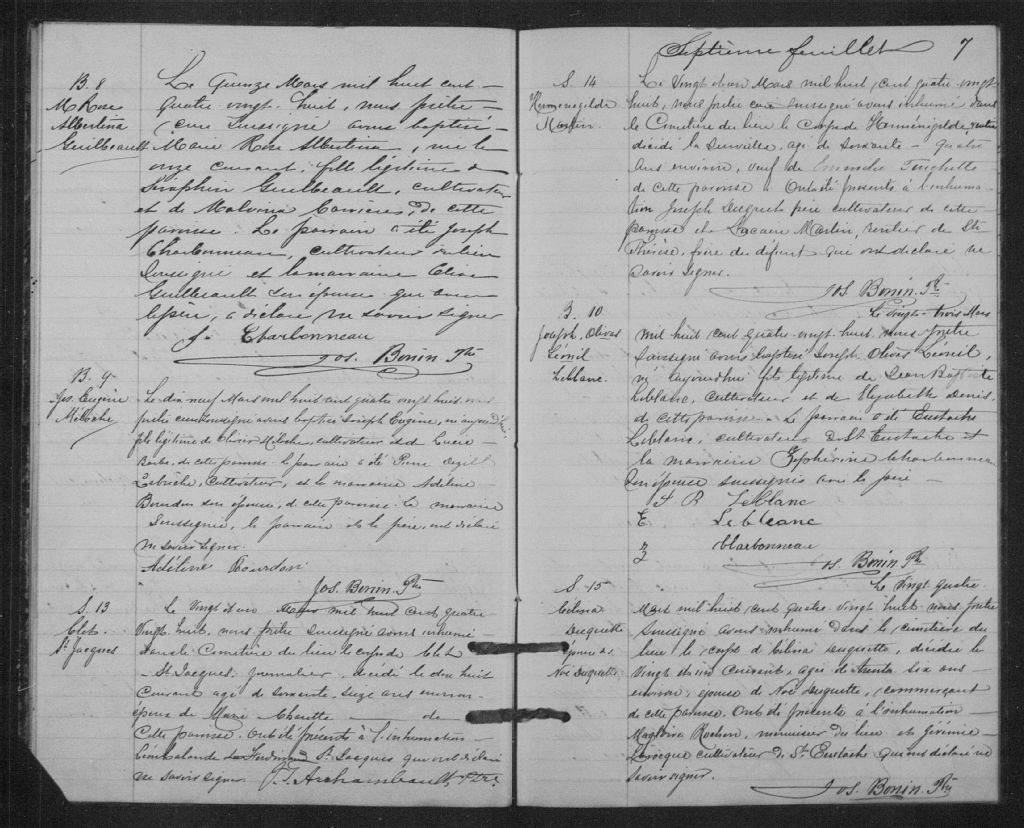 B. 8
M. Rose
Albertina
Guilbeault
Le Quinze Mars mil huit cent
quatre vingt huit, nous prêtre
curé soussigné avons baptisé
Marie Rose Albertina, née le
onze courant, fille légitime de
Séraphin Guilbeault, cultivateur
et de Malvina Carrière, de cette
paroisse. Le parrain a été Joseph
Charbonneau, cultivateur
soussigné et la marraine
Guilbeault son épouse qui avec
le père, a déclaré ne savoir signer
J. Charbonneau
Jos. Bonin Ptre
B. 9
Jos. Eugène
Miloche
Le dix neuf Mars mil huit cent quatre vingt huit, nous
prêtre curé soussigné avons baptisé Joseph Eugène, né aujourd
fils légitime de Olivier Miloche, cultivateur et de Lucie
Barbe, de cette paroisse. Le parrain a été Pierre
Labrèche, cultivateur, et la marraine Adéline
Bourdon son épouse, de cette paroisse. La marraine
soussignée, le parrain et le père, ont déclaré
ne savoir signer.
Adéline Bourdon
Jos. Bonin Ptre
S. 13
Clet
St Jacques
Le vingt et un Mars mil huit cent quatre
vingt huit, nous prêtre soussigné avons inhumé
dans le Cimetière du lieu le corps de Clet
St Jacques, journalier, décédé le dix huit
courant agé de soixante seize ans environ
époux de Marie Charette de
cette paroisse. Ont été présents à l'inhumation
Ferdinand St Jacques qui ont déclaré
ne savoir signer. J. Archambeault, Ptre
Septième feuillet 7
S. 14
Herménégilde
Martin
Le vingt et un Mars mil huit cent quatre vingt
huit, nous prêtre curé soussigné avons inhumé dans
le Cimetière du lieu le Corps de Herménégilde
décédé agé de soixante quatre
ans environ, veuf de Turchette
de cette paroisse. Ont été présents à l'inhuma-
tion Joseph père cultivateur de cette
paroisse et Martin, rentier de Ste
Thérèse, frère du défunt qui ont déclaré ne
savoir signer.
Jos. Bonin Ptre
B. 10
Joseph, Olivas
Léonil
Leblanc.
Le vingt trois Mars
mil huit cent quatre vingt huit nous prêtre
soussigné avons baptisé Joseph Olivas Léonil,
né aujourd'hui fils légitime de Jean Baptiste
Leblanc, cultivateur et de Elizabeth Denis
de cette paroisse. Le parrain a été Eustache
Leblanc, cultivateur de St Eustache et
la marraine Zéphirine Charbonneau
son épouse soussignés avec le père
J B Leblanc
E Leblanc
Z Charbonneau
Jos. Bonin Ptre
S. 15
Celina
Duquette
épouse de
Noé Duquette
Le vingt quatre
Mars mil huit cent quatre vingt huit nous prêtre
soussigné avons inhumé dans le cimetière du
lieu le corps de Celina Duquette, décédée le
vingt et un courant, agée de trente six ans
environ, épouse de Noé Duquette, commerçant
de cette paroisse. Ont été présents à l'inhumation
Magloire Rochon, menuisier du lieu et Jérémie
Larocque cultivateur de St Eustache qui ont déclaré ne
savoir signer.
Jos. Bonin Ptre